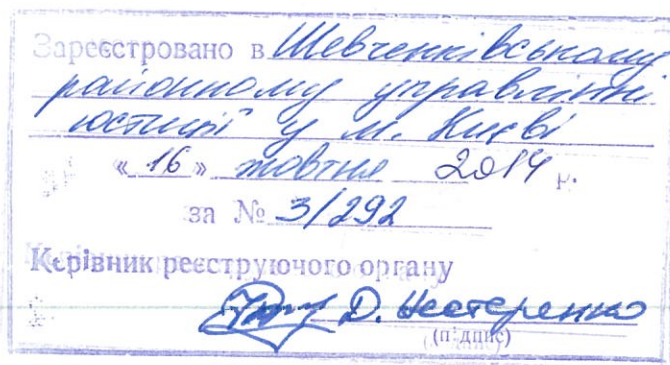 Зареєстровано в Шевченківському
районному управлінні
юстиції у м. Києві
«16» жовтня 2014 р.
за № 3/292
Керівник реєструючого органу
Д. Нестеренко
(підпис)